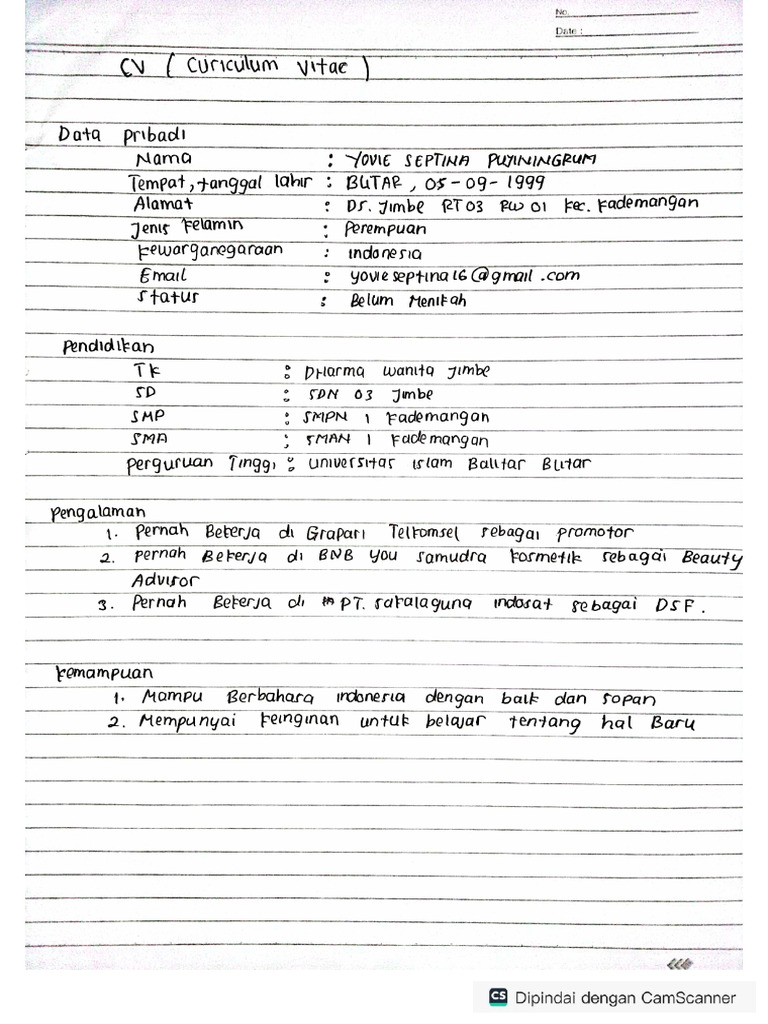 No.
Date :
CV ( Curiculum Vitae )
Data pribadi
Nama : YOVIE SEPTINA PUJININGRUM
Tempat, tanggal lahir : BLITAR, 05-09-1999
Alamat : Ds. Jimbe RT 03 RW 01 Kec. Kademangan
Jenis Kelamin : Perempuan
Kewarganegaraan : Indonesia
Email : yovieseptina16@gmail.com
Status : Belum Menikah
Pendidikan
TK : DHarma Wanita Jimbe
SD : SDN 03 Jimbe
SMP : SMPN 1 Kademangan
SMA : SMAN 1 Kademangan
Perguruan Tinggi : Universitas Islam Balitar Blitar
Pengalaman
1. Pernah Bekerja di Grapari Telkomsel sebagai promotor
2. Pernah Bekerja di BNB You Samudra Kosmetik sebagai Beauty
Advisor
3. Pernah Bekerja di PT. Sakalaguna Indosat sebagai DSF.
Kemampuan
1. Mampu Berbahasa Indonesia dengan baik dan sopan
2. Mempunyai keinginan untuk belajar tentang hal Baru
CS Dipindai dengan CamScanner